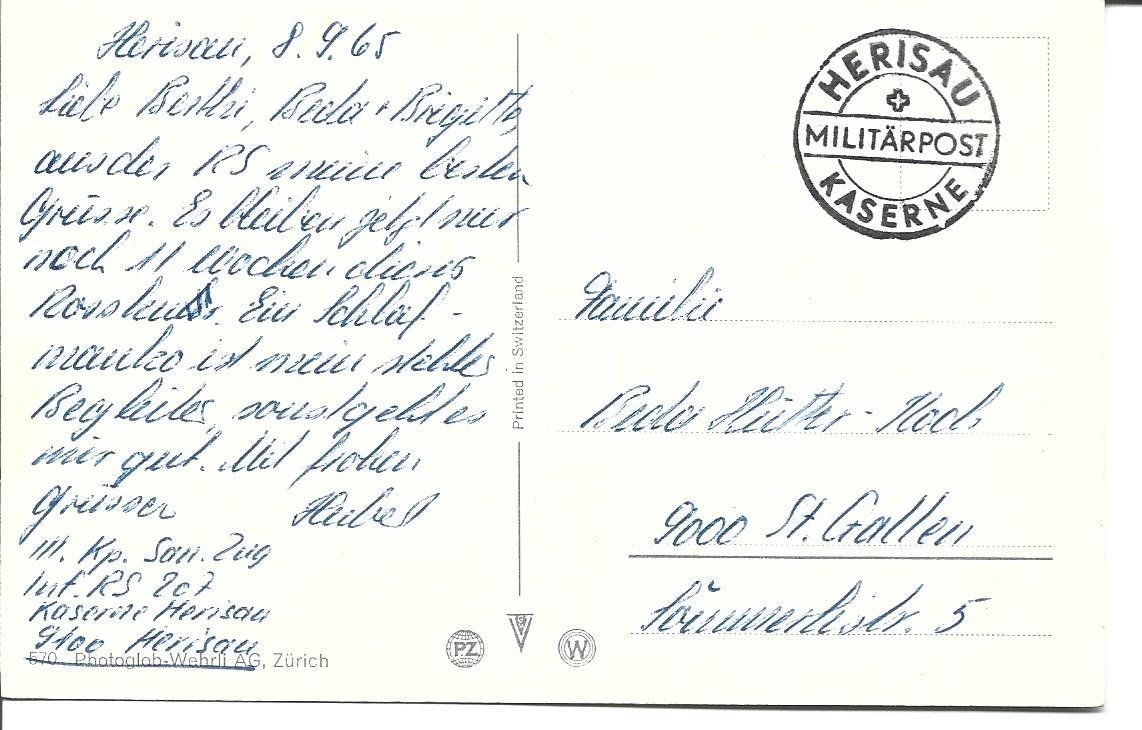 Herisau, 8.9.65
Liebe Berthi, Beda + Brigitte,
aus der RS meine besten
Grüsse. Es bleiben jetzt nur
noch 11 Wochen dieses
Ein Schlaf-
manko ist mein steter
Begleiter, sonst geht es
mir gut. Mit frohen
Grüssen Hubert
III. Kp. San. Zug
Inf. RS 207
Kaserne Herisau
9100 Herisau
570 Photoglob-Wehrli AG, Zürich
Printed in Switzerland
PZ
W
HERISAU
MILITÄRPOST
KASERNE
Familie
Beda Hutter-Koch
9000 St. Gallen
Sömmerlistr. 5